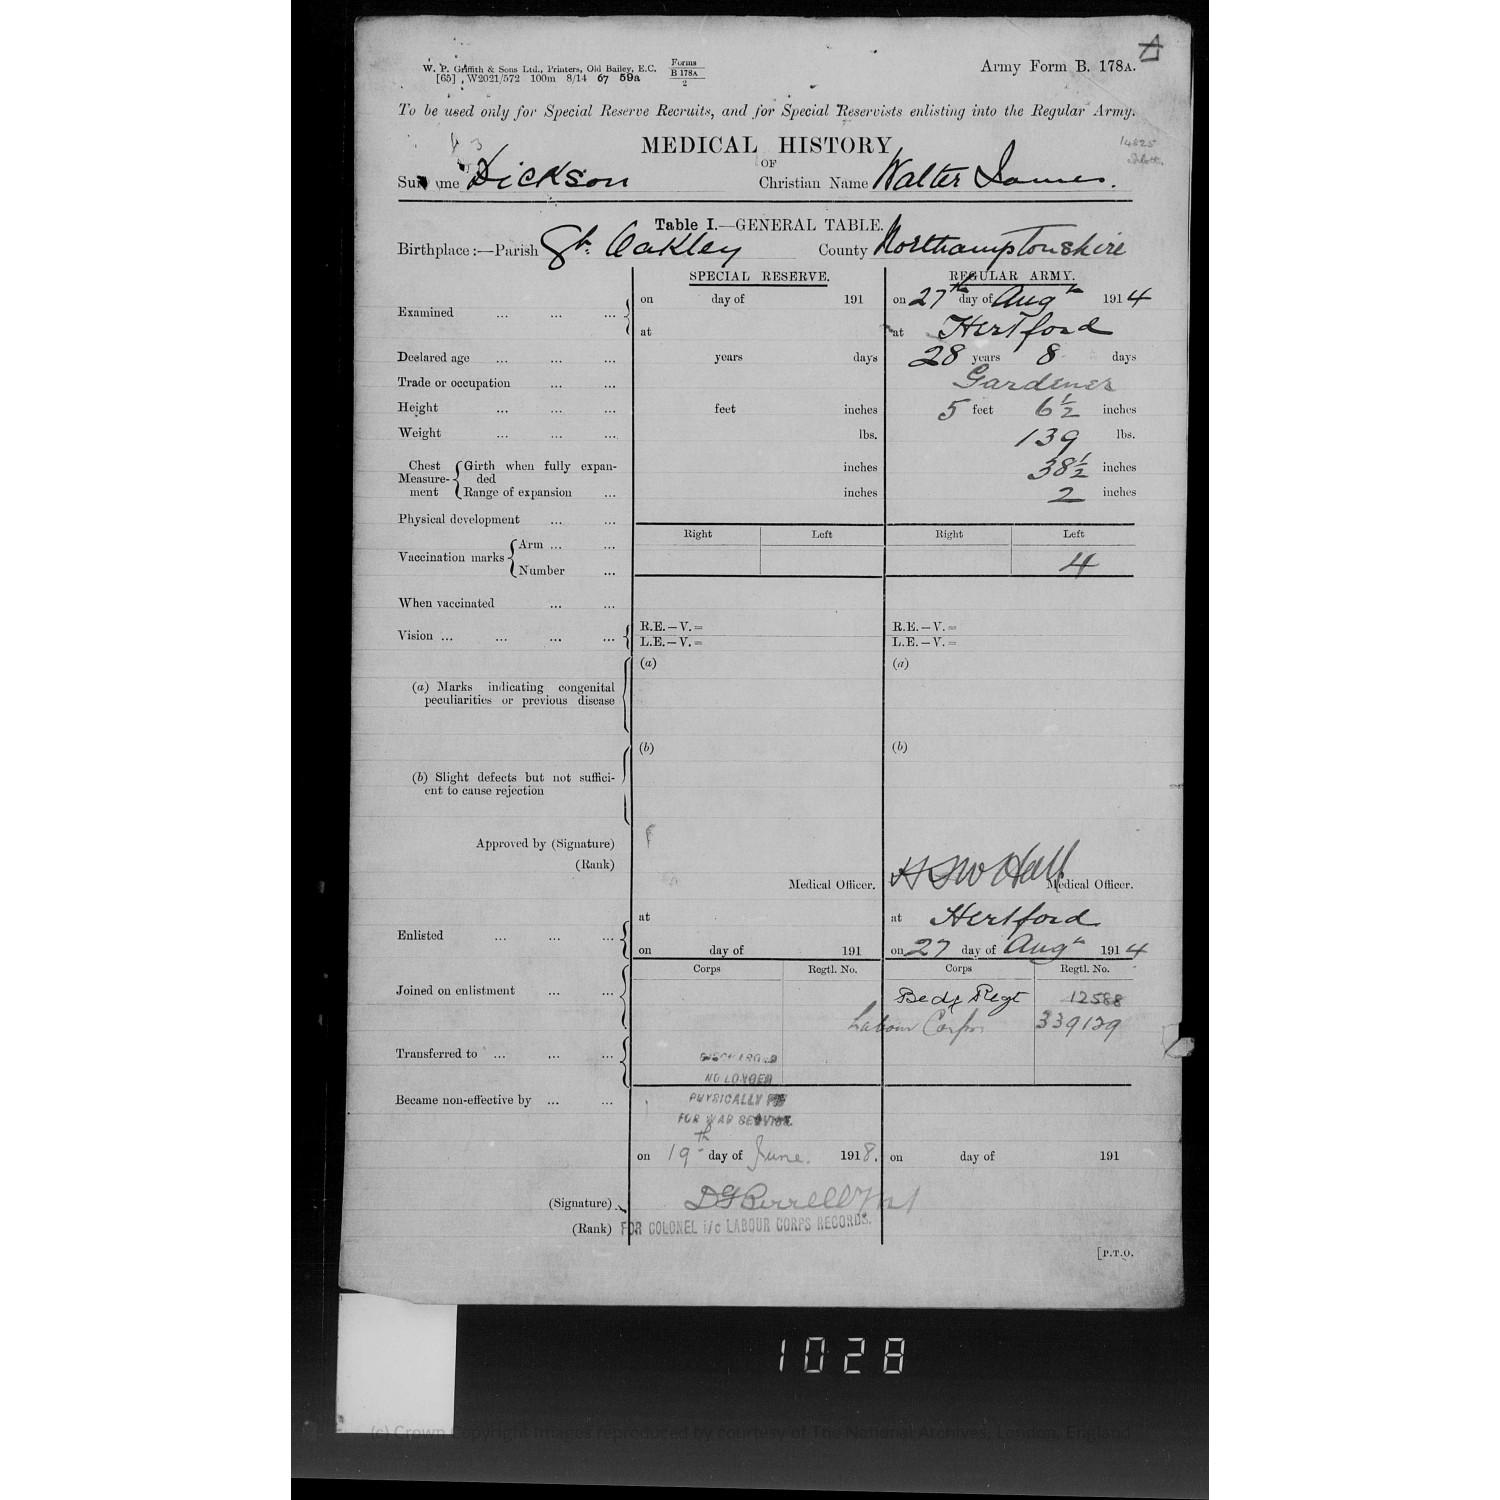 W. P. Griffith & Sons Ltd., Printers, Old Bailey, E.C.
[65] W2021/572 100m 8/14 67 59a
Forms
B 178A
2
Army Form B. 178A.
To be used only for Special Reserve Recruits, and for Special Reservists enlisting into the Regular Army.
MEDICAL HISTORY
OF
14825
Surname Dickson Christian Name Walter James.
Table I.—GENERAL TABLE.
Birthplace:—Parish Gt. Oakley County Northamptonshire
SPECIAL RESERVE. REGULAR ARMY.
Examined ... ... ... on day of 191 on 27th day of Augt 1914
at at Hertford
Declared age ... ... ... years days 28 years 8 days
Trade or occupation ... ... Gardener
Height ... ... ... feet inches 5 feet 6½ inches
Weight ... ... ... lbs. 139 lbs.
Chest Measurement Girth when fully expanded inches 38½ inches
Range of expansion ... inches 2 inches
Physical development ... ...
Right Left Right Left
Vaccination marks Arm ... ...
Number ... 4
When vaccinated ... ...
Vision ... ... ... ... R.E.—V.= R.E.—V.=
L.E.—V.= L.E.—V.=
(a) (a)
(a) Marks indicating congenital
peculiarities or previous disease
(b) (b)
(b) Slight defects but not suffici-
ent to cause rejection
Approved by (Signature)
(Rank)
Medical Officer. H S W Hall Medical Officer.
at at Hertford
Enlisted ... ... ...
on day of 191 on 27 day of Augt 1914
Corps Regtl. No. Corps Regtl. No.
Joined on enlistment ... ... Beds Regt 12588
Labour Corps 339129
Transferred to ... ... ... DISCHARGED
NO LONGER
Became non-effective by ... ... PHYSICALLY FIT
FOR WAR SERVICE.
on 19th day of June. 1918. on day of 191
(Signature)
(Rank) FOR COLONEL i/c LABOUR CORPS RECORDS.
[P.T.O.
1028
(c) Crown Copyright Images reproduced by courtesy of The National Archives, London, England